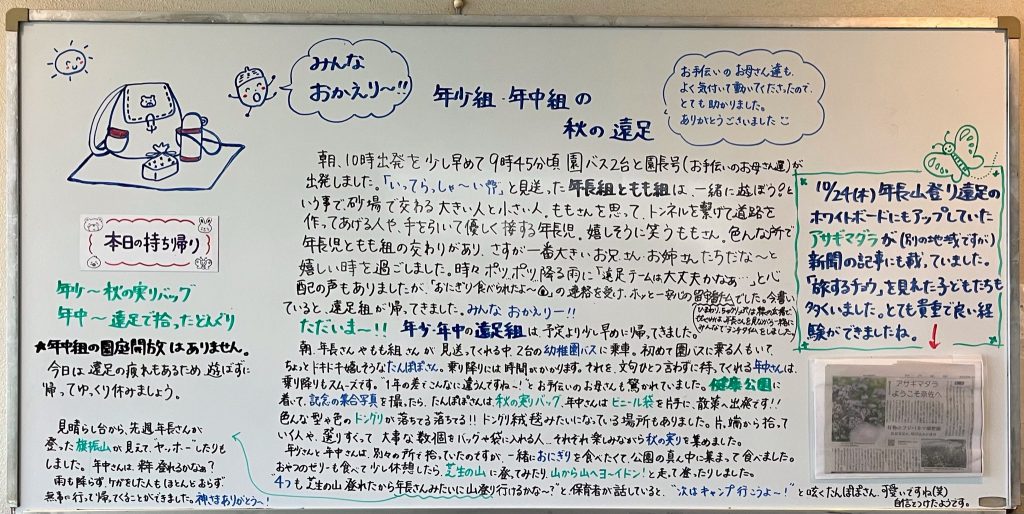 みんな
おかえり〜!!
年少組・年中組の
秋の遠足
お手伝いのお母さん達も、
よく気付いて動いてくださったので、
とても助かりました。
ありがとうございました
朝、10時出発を少し早めて9時45分頃 園バス2台と園長号(お手伝いのお母さん達)が
出発しました。「いってらっしゃ〜い」と見送った年長組ともも組は、一緒に遊ぼう♪と
いう事で、砂場で交わる大きい人と小さい人。ももさんを思って、トンネルを繋げて道路を
作ってあげる人や、手を引いて優しく接する年長児。嬉しそうに笑うももさん。色んな所で
年長児ともも組の交わりがあり、さすが一番大きいお兄さんお姉さんたちだな〜と
嬉しい時を過ごしました。時々ポツ、ポツ、降る雨に「遠足チームは大丈夫かなぁ…」と心
配の声もありましたが、「おにぎり食べられたよ〜」の連絡を受け、ホッと一安心の留守番チームでした。今書い
ていると、遠足組が帰ってきました。みんな おかえり〜!!
ただいま〜!! 年少・年中の遠足組は、予定より少し早めに帰ってきました。
朝、年長さんやもも組さんが見送ってくれる中、2台の幼稚園バスに乗車。初めて園バスに乗る人もいて、
ちょっとドキドキ嬉しそうなたんぽぽさん。乗り降りには時間がかかります。それを、文句ひとつ言わずに待ってくれる年中さんは、
乗り降りもスムーズです。"1年の差でこんなに違うんですね〜!"とお手伝いのお母さんも驚かれていました。健康公園に
着いて、記念の集合写真を撮ったら、たんぽぽさんは、秋の実りバッグ、年中さんはビニール袋を片手に、散策へ出発です!!
色んな型や色のドングリが落ちてる落ちてる!!ドングリ絨毯みたいになっている場所もありました。片っ端から拾って
いく人や、選りすぐって大事な数個をバッグや袋に入れる人…それぞれ楽しみながら秋の実りを集めました。
年少さんと年中さんは、別々の所を拾っていたのですが、一緒におにぎりを食べたくて、公園の真ん中に集まって食べました。
おやつのゼリーも食べて少し休憩したら、芝生の山に登ってみたり、山から山へヨーイドン!と走って登ったりしました。
"4つも芝生の山登れたから年長さんみたいに山登り行けるかな〜?"と保育者が話していると、"次はキャンプ行こうよ〜!"と呟くたんぽぽさん。可愛いですね(笑)
自信をつけたようです。
本日の持ち帰り
年少〜秋の実りバッグ
年中〜遠足で拾ったどんぐり
★年中組の園庭開放はありません。
今日は遠足の疲れもあるため、遊ばずに
帰ってゆっくり休みましょう。
見晴らし台から、先週年長さんが
登った旗振山が見えて、ヤッホーしたりも
しました。年中さんは来年登れるかなぁ?
雨も降らず、ケガをした人も(ほとんど)おらず
無事に行って帰ってくることができました。神さまありがとう〜!
10/24(木)年長山登り遠足の
ホワイトボードにもアップしていた
アサギマダラが(別の地域ですが)
新聞の記事にも載っていました。
「旅するチョウ」を見れた子どもたちも
多くいました。とても貴重で良い経
験ができましたね。
アサギマダラ
ようこそ奈佐へ